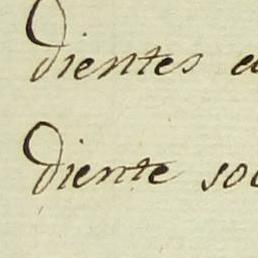 dientes
diente